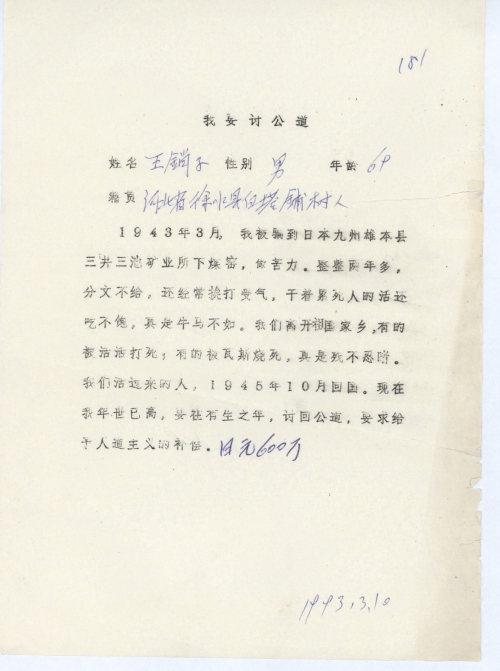 181
我要讨公道
姓名 王锁子 性别 男 年龄 69
籍贯 河北省徐水县白塔铺村人
1943年3月，我被骗到日本九州雄本县
三井三池矿业所下煤窑，做苦力。整整两年多，
分文不给，还经常挨打受气，干着累死人的活还
吃不饱，真是牛马不如。我们离开祖国家乡，有的
被活活打死；有的被瓦斯烧死，真是残不忍睹。
我们活过来的人，1945年10月回国。现在
我年世已高，要在有生之年，讨回公道，要求给
予人道主义的补偿．日元600万
1993.3.10